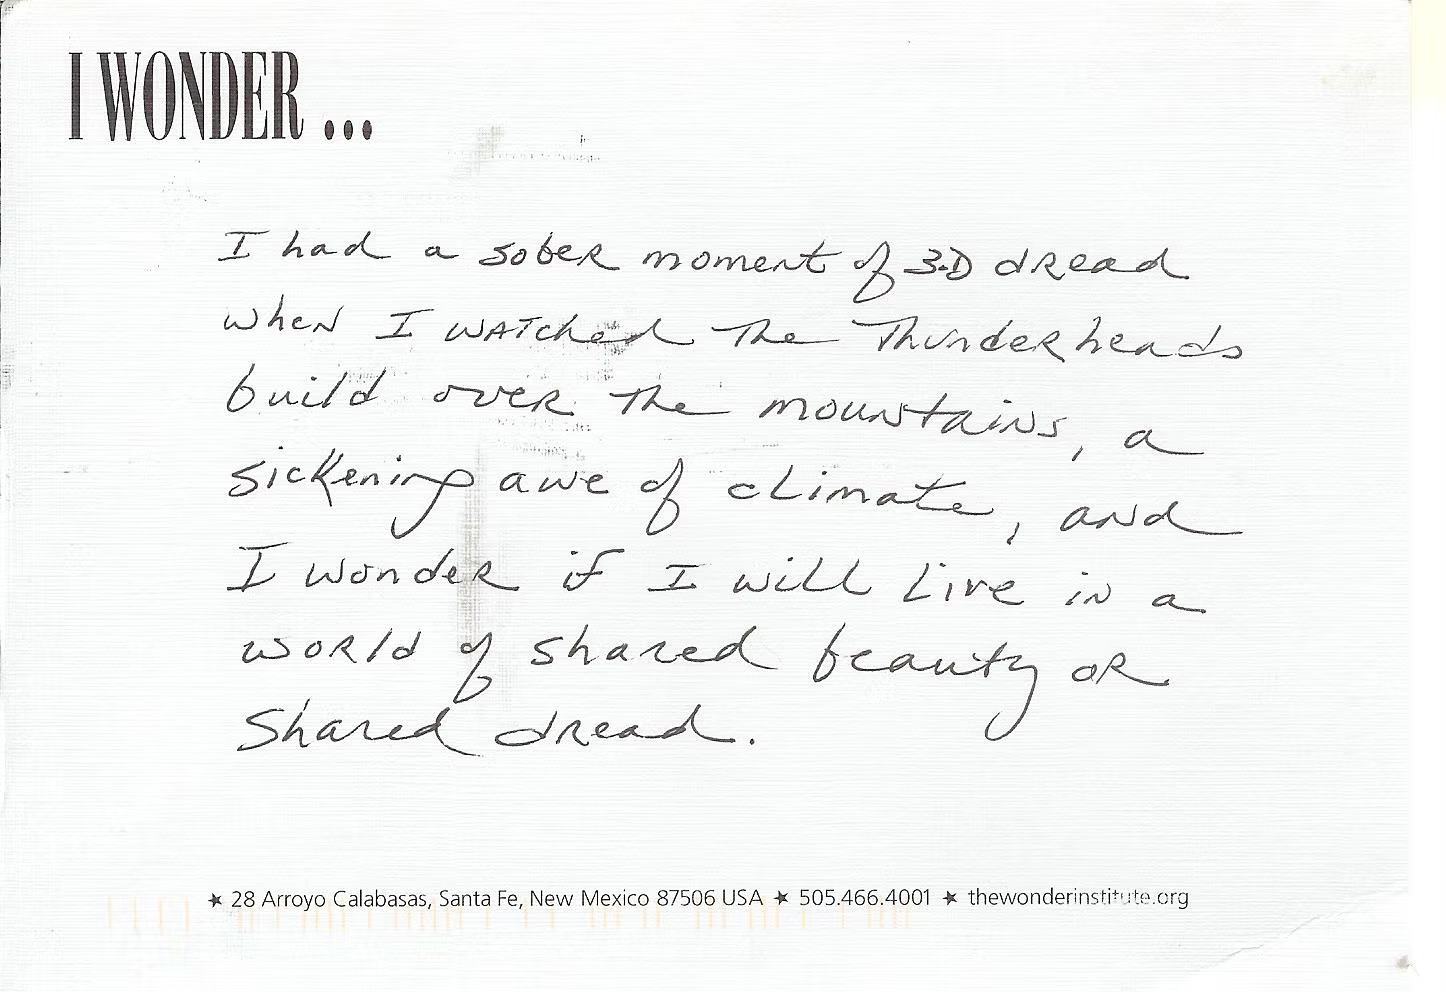 I WONDER ...
I had a sober moment of 3-D dread
when I watched the Thunderheads
build over the mountains, a
sickening awe of climate, and
I wonder if I will live in a
world of shared beauty or
shared dread.
★ 28 Arroyo Calabasas, Santa Fe, New Mexico 87506 USA ★ 505.466.4001 ★ thewonderinstitute.org